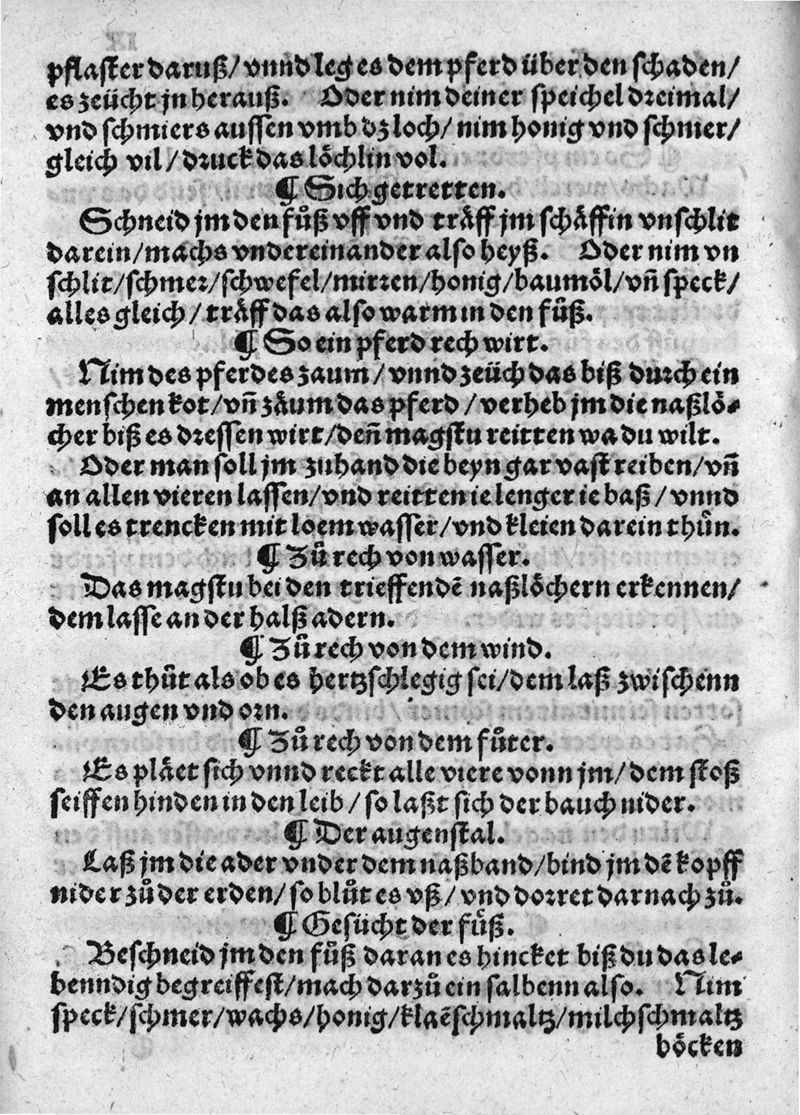 pflaster daruß/ vnnd leg es dem pferd über den schaden/
es zeücht jn herauß. Oder nim deiner speichel dreimal/
vnd schmiers aussen vmb dz loch/ nim honig vnd schmer/
gleich vil/ druck das löchlin vol.
¶ Sich getretten.
Schneid jm den fůß vff vnd träff jm schäffin vnschlit
darein/ machs vndereinander also heyß. Oder nim vn
schlit/ schmer/ schwefel/ mirren/ honig/ baumöl/ vn̄ speck/
alles gleich/ träff das also warm in den fůß.
¶ So ein pferd rech wirt.
Nim des pferdes zaum/ vnnd zeüch das biß durch ein
menschen kot/ vn̄ zäum das pferd/ verheb jm die naßlö⸗
cher biß es dressen wirt/ den̄ magstu reitten wa du wilt.
Oder man soll jm zuhand die beyn gar vast reiben/ vn̄
an allen vieren lassen/ vnd reitten ie lenger ie baß/ vnnd
soll es trencken mit loem wasser/ vnd kleien darein thůn.
¶ Zů rech von wasser.
Das magstu bei den trieffendē naßlöchern erkennen/
dem lasse an der halß adern.
¶ Zů rech von dem wind.
Es thůt als ob es hertzschlegig sei/ dem laß zwischenn
den augen vnd orn.
¶ Zů rech von dem fůter.
Es pläet sich vnnd reckt alle viere vonn jm/ dem stoß
seiffen hinden in den leib/ so laßt sich der bauch nider.
¶ Der augenstal.
Laß jm die ader vnder dem naßband/ bind jm dē kopff
nider zů der erden/ so blůt es vß/ vnd dorret darnach zů.
¶ Gesücht der fůß.
Beschneid jm den fůß daran es hincket biß du das le⸗
benndig begreiffest/ mach darzů ein salbenn also. Nim
speck/ schmer/ wachs/ honig/ klaēschmaltz/ milchschmaltz
böcken